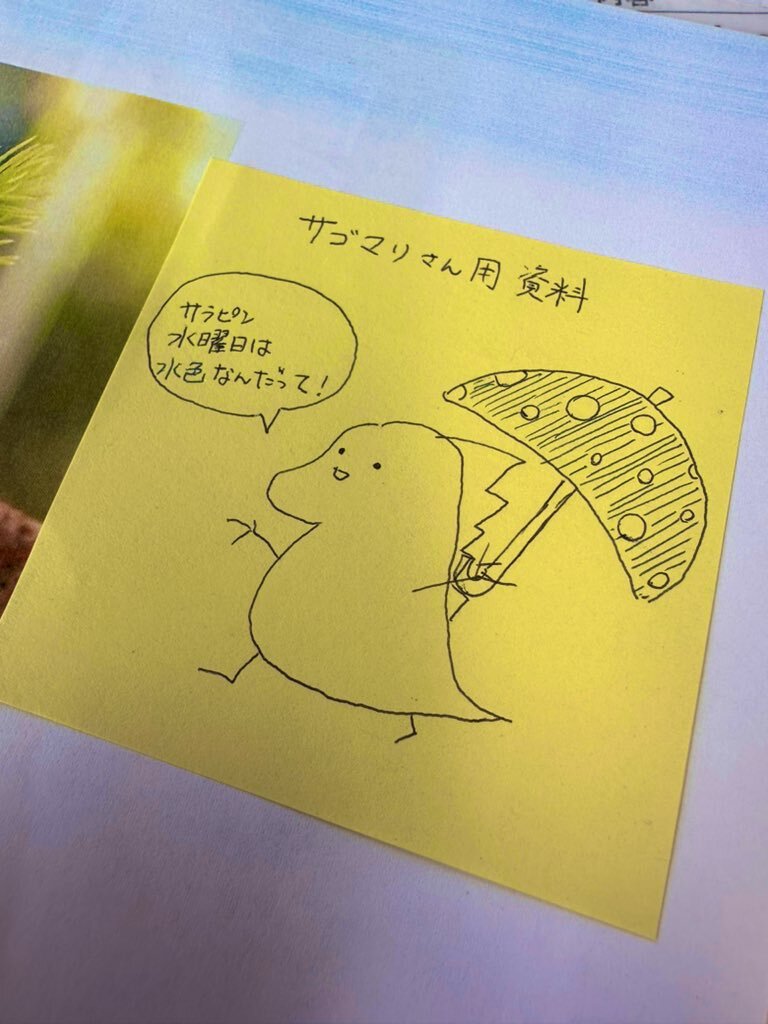 サゴマリさん用 資料
サラピン
水曜日は
水色なんだって!